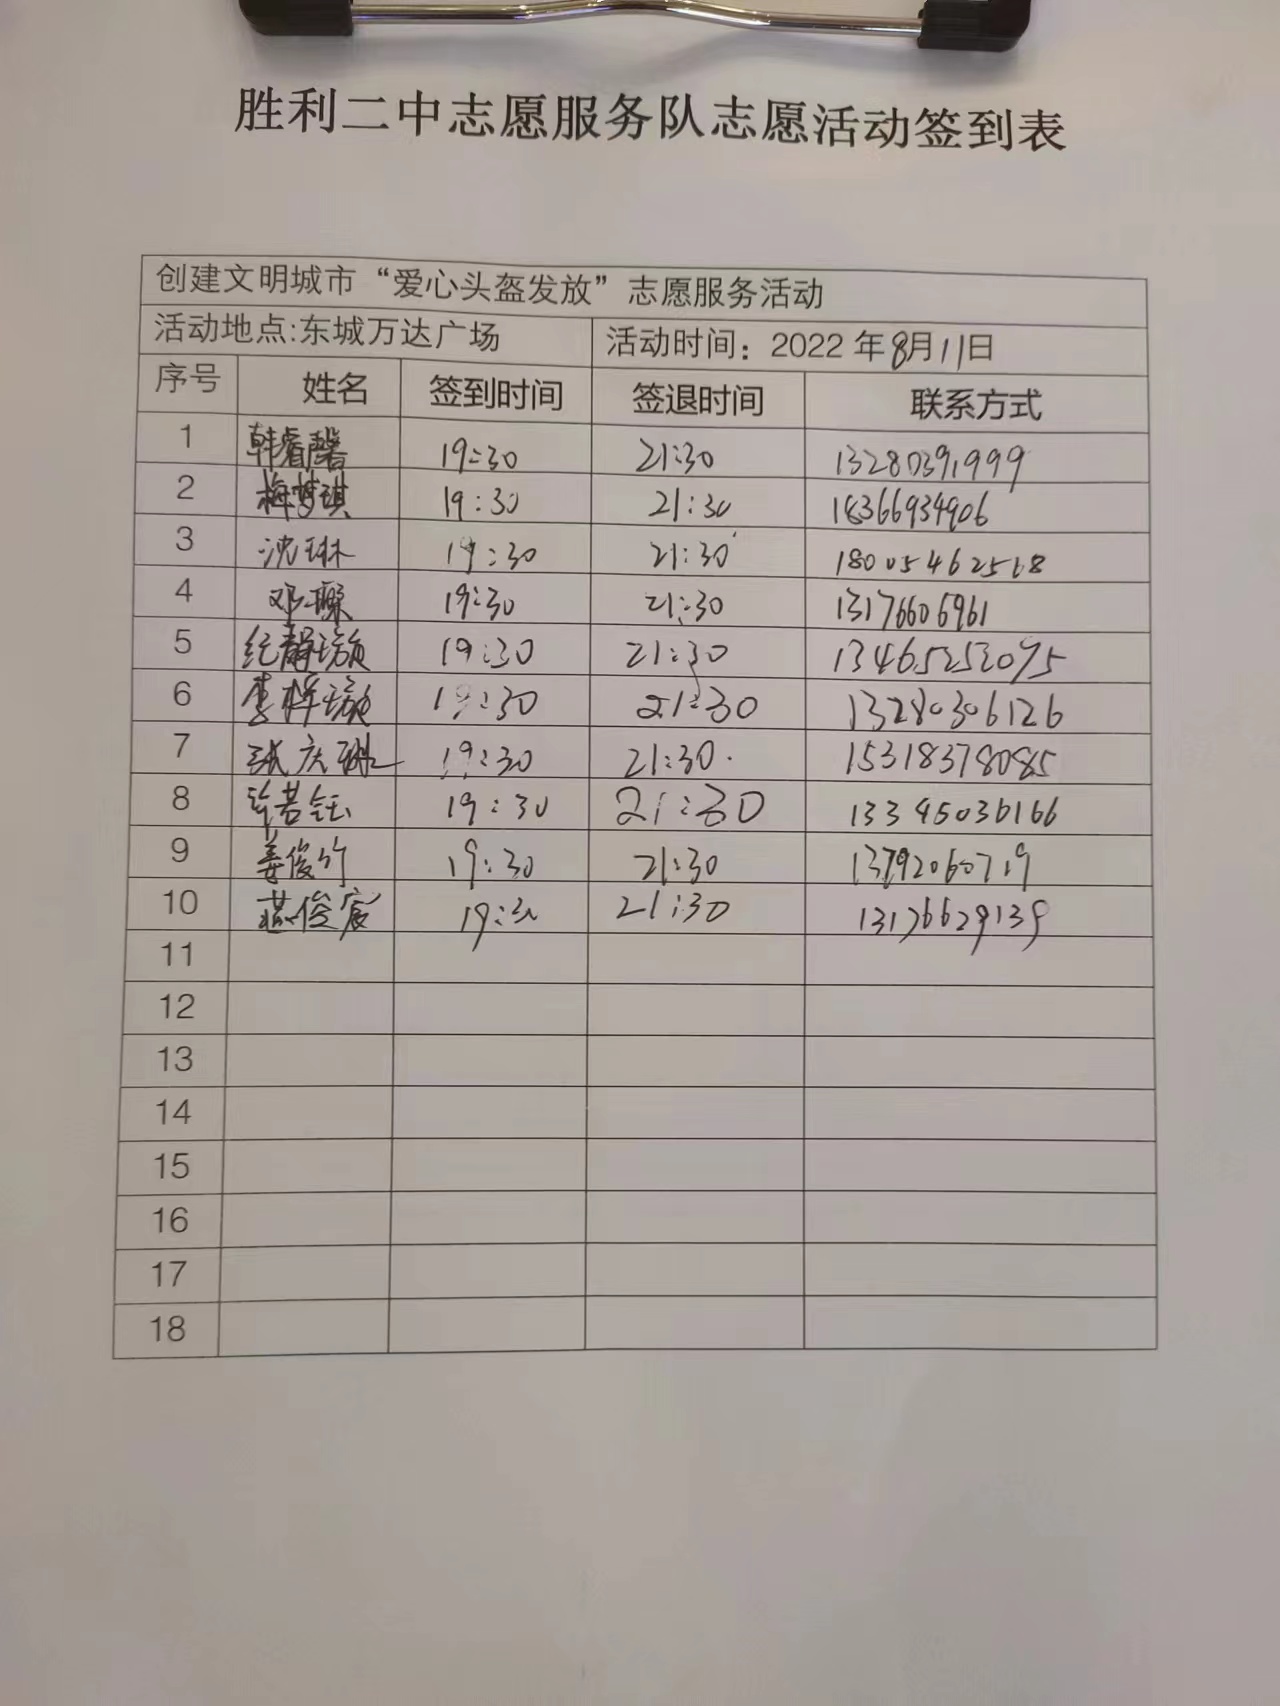 胜利二中志愿服务队志愿活动签到表
创建文明城市“爱心头盔发放”志愿服务活动
活动地点:东城万达广场 活动时间：2022年8月11日
序号 姓名 签到时间 签退时间 联系方式
1 韩睿馨 19:30 21:30 13280391999
2 梅梦琪 19:30 21:30 18366934906
3 沈琳 19:30 21:30 18005462568
4 邓璨 19:30 21:30 13176606961
5 纪静璇 19:30 21:30 13465252095
6 李梓璇 19:30 21:30 13280306126
7 张庆琳 19:30 21:30 15318378085
8 许若钰 19:30 21:30 13345036166
9 姜俊竹 19:30 21:30 13792060719
10 燕俊宸 19:30 21:30 13176629139
11
12
13
14
15
16
17
18